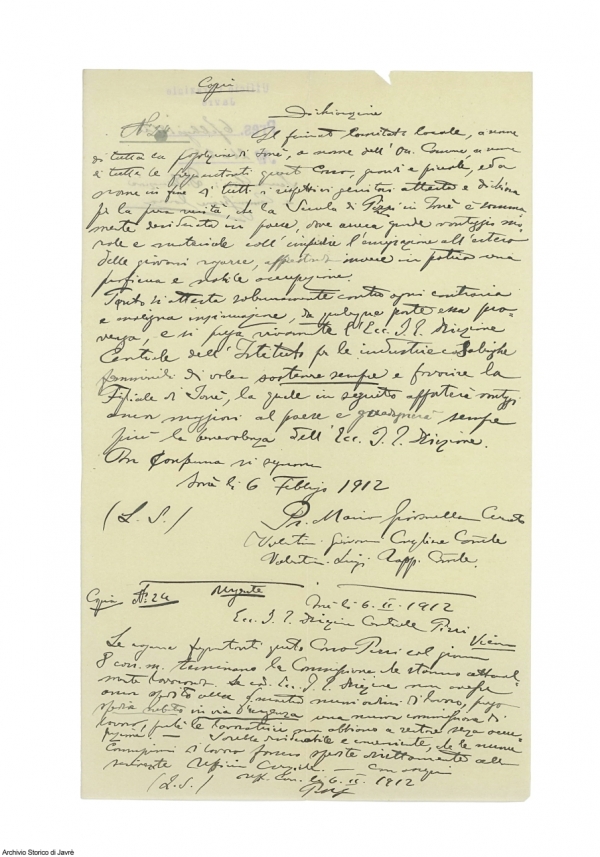 Copia
Dichiarazione
Il firmato Comitato locale, a nome
di tutta la popolazione di Javrè, a nome dell'On. Comune, a nome
di tutte le frequentanti questo Corso, grandi e piccole, ed a
nome in fine di tutti i rispettivi genitori attesta e dichiara
per la pura verità, che la Scuola di Pizzi in Javrè è somma
mente desiderata in paese, dove arreca grande vantaggio mo
rale e materiale coll'impedire l'emigrazione all'estero
delle giovani ragazze, invece in patria una
proficua e nobile occupazione.
Tanto si attesta solennemente contro ogni contraria
e maligna insinuazione, da qualunque parte essa pro
venga, e si prega vivamente l'Ecc. I. R. Direzione
Centrale dell'Istituto per le industrie casalinghe
femminili di voler sostenere sempre e favorire la
Filiale di Javrè, la quale in seguito apporterà vantaggi
ancor maggiori al paese e guadagnerà sempre
più la benevolenza dell'Ecc. I. R. Direzione.
Per conferma si firmano
Javrè li 6 Febbrajo 1912
(L. S.)
Pr. Mario Curato
Valentini Giovanni Consigliere Comle
Valentini Luigi Rapp. Comle.
Copia No 24 Urgente Javrè li 6. II. 1912
Ecc. I. R. Direzione Centrale Pizzi Vienna
Le ragazze frequentanti questo Corso Pizzi col giorno
8 corr. m. terminano la Commissione che stanno attual
mente lavorando. Se cod. Ecc. I. R. Direzione non avesse
ancor spedito alla nuovi ordini di lavoro, prego
spedire subito in via d'urgenza una nuova commissione di
lavoro, perché le lavoratrici non abbiano a restar senza occu
pazione. — Sarebbe desiderabile e conveniente, che le nuove
Commissioni di lavoro fossero spedite direttamente alla
scrivente. Con ossequi
(L. S.) li 6. II. 1912
Archivio Storico di Javrè